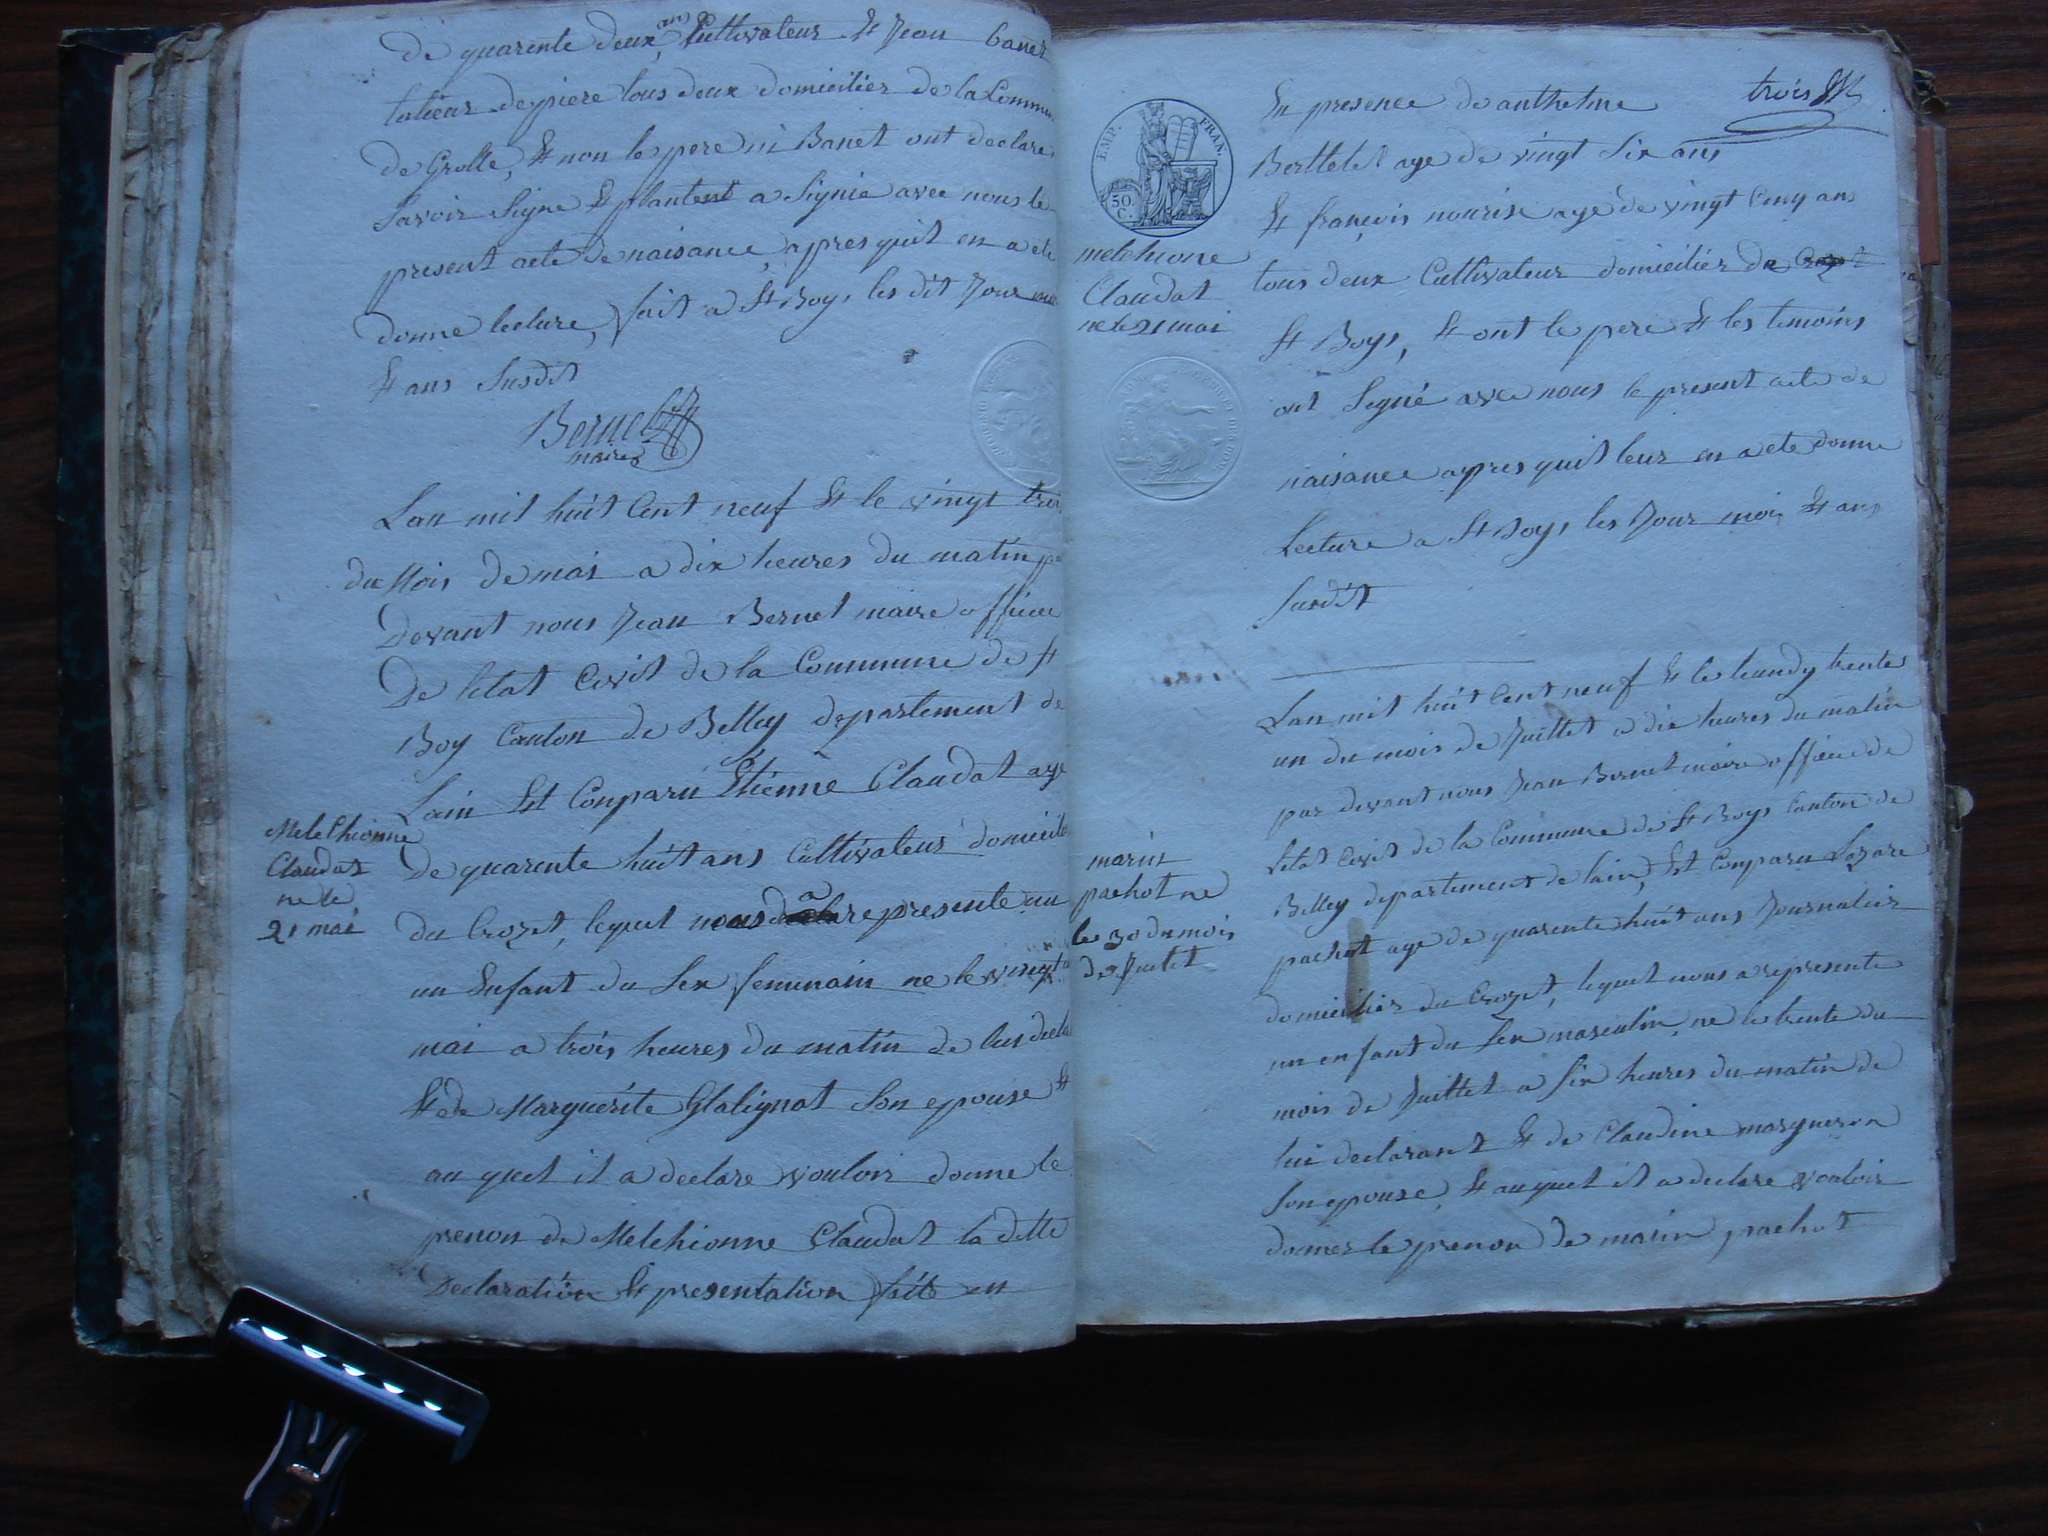 de quarente deux ans Cultivateur Et Jean banet
talieur de piere tous deux domicilier de la Commu
de Grolle, Et non le pere ni Banet ont declare
Savoir Signe Et plantent a Signie avec nous le
present acte de naisance, apres quil en a ete
donne lecture, fait a St Boys les dit Jour
Et ans Susdit
Bernet
maire
Lan mil huit Cent neuf Et le vingt troi
du Mois de mai a dix heures du matin
Devant nous Jean Bernet maire officie
De letat Civil de la Commune de St
Boy Canton de Belley departement de
Lain Est Conparu Etienne Claudat age
De quarente huit ans Cultivateur domicile
du Crozet, lequel nous a represente
un Enfant du Sex femenain ne le vingt
mai a trois heures du matin de lui decla
Et de Marguerite Glalignat Son epouse Et
au quel il a declare vouloir donne le
prenon de Melchionne Claudat la ditte
Declaration Et presentation faite en
Melchionne
Claudat
ne le
21 mai
trois
EMP. FRAN.
50.
C.
melchione
Claudat
ne le 21 mai
En presence de anthelme
Berthelet age de vingt Six ans
Et françois nourise age de vingt Cinq ans
tous deux Cultivateur domicilier de
St Boys, Et ont le pere Et les temoins
ont Signé avec nous le present acte de
naisance apres quil leur en a ete donne
Lecture a St Boys les Jour mois Et ans
Susdit
Lan mil huit Cent neuf Et le lundy trente
un du mois de Juillet a dix heures du matin
par devant nous Jean Bernet maire officie de
letat Civil de la Commune de St Boys Canton de
Belley departement de lain, Est Conparu Lazare
pachot age de quarente huit ans Journalier
domicilier du Crozet, lequel nous a represente
un enfant du Sex masculin ne le trente du
mois de Juillet a Six heures du matin de
lui declarant Et de Claudine margueron
Son epouse, Et auquel il a declare vouloir
donner le prenon de marin pachot
marin
pachot ne
le 30 du mois
de Juilet